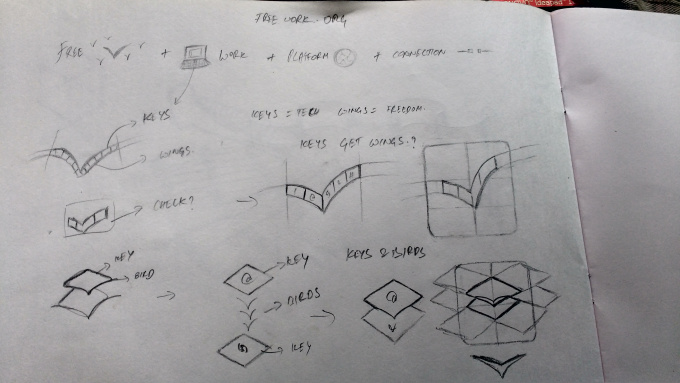 FREE WORK.ORG
FREE + WORK + PLATFORM + CONNECTION
KEYS
KEYS = TECH WINGS = FREEDOM.
WINGS.
KEYS GET WINGS.?
CHECK?
KEY
BIRD
@
KEY
BIRDS
KEY
KEYS & BIRDS
@